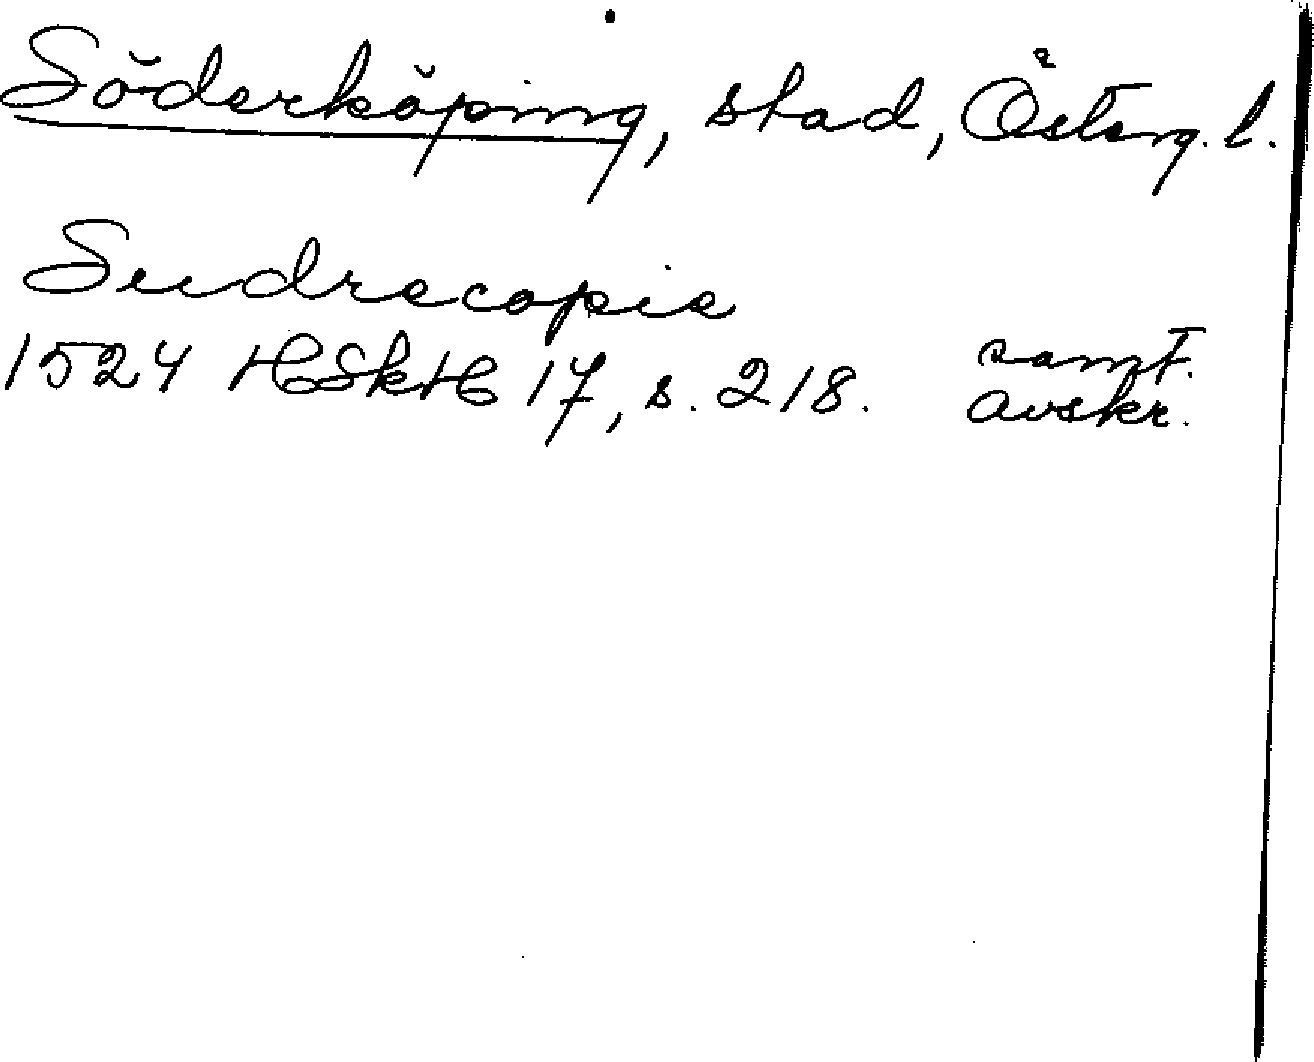 Söderköping, stad, Österg. l.
Sudracopia
1524 HSkH 17, s. 218. samt.
avskr.